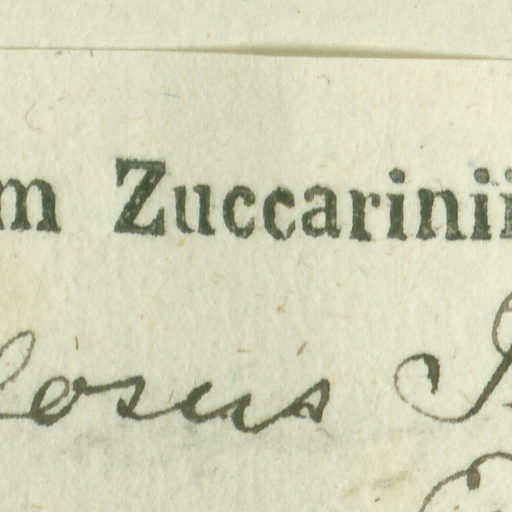 m Zuccarinii
losus